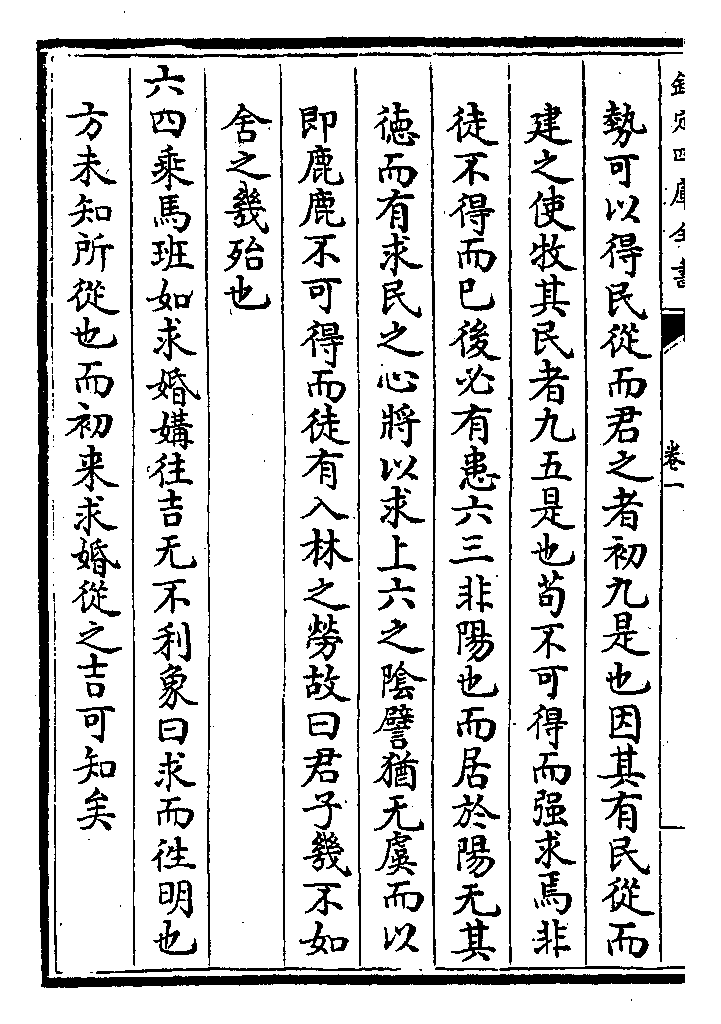 欽定四庫全書
卷一
勢可以得民從而君之者初九是也因其有民從而
建之使牧其民者九五是也苟不可得而强求焉非
徒不得而已後必有患六三非陽也而居於陽无其
徳而有求民之心將以求上六之隂譬猶无虞而以
即鹿鹿不可得而徒有入林之勞故曰君子幾不如
舍之幾殆也
六四乘馬班如求婚媾往吉无不利象曰求而徃明也
方未知所從也而初来求婚從之吉可知矣